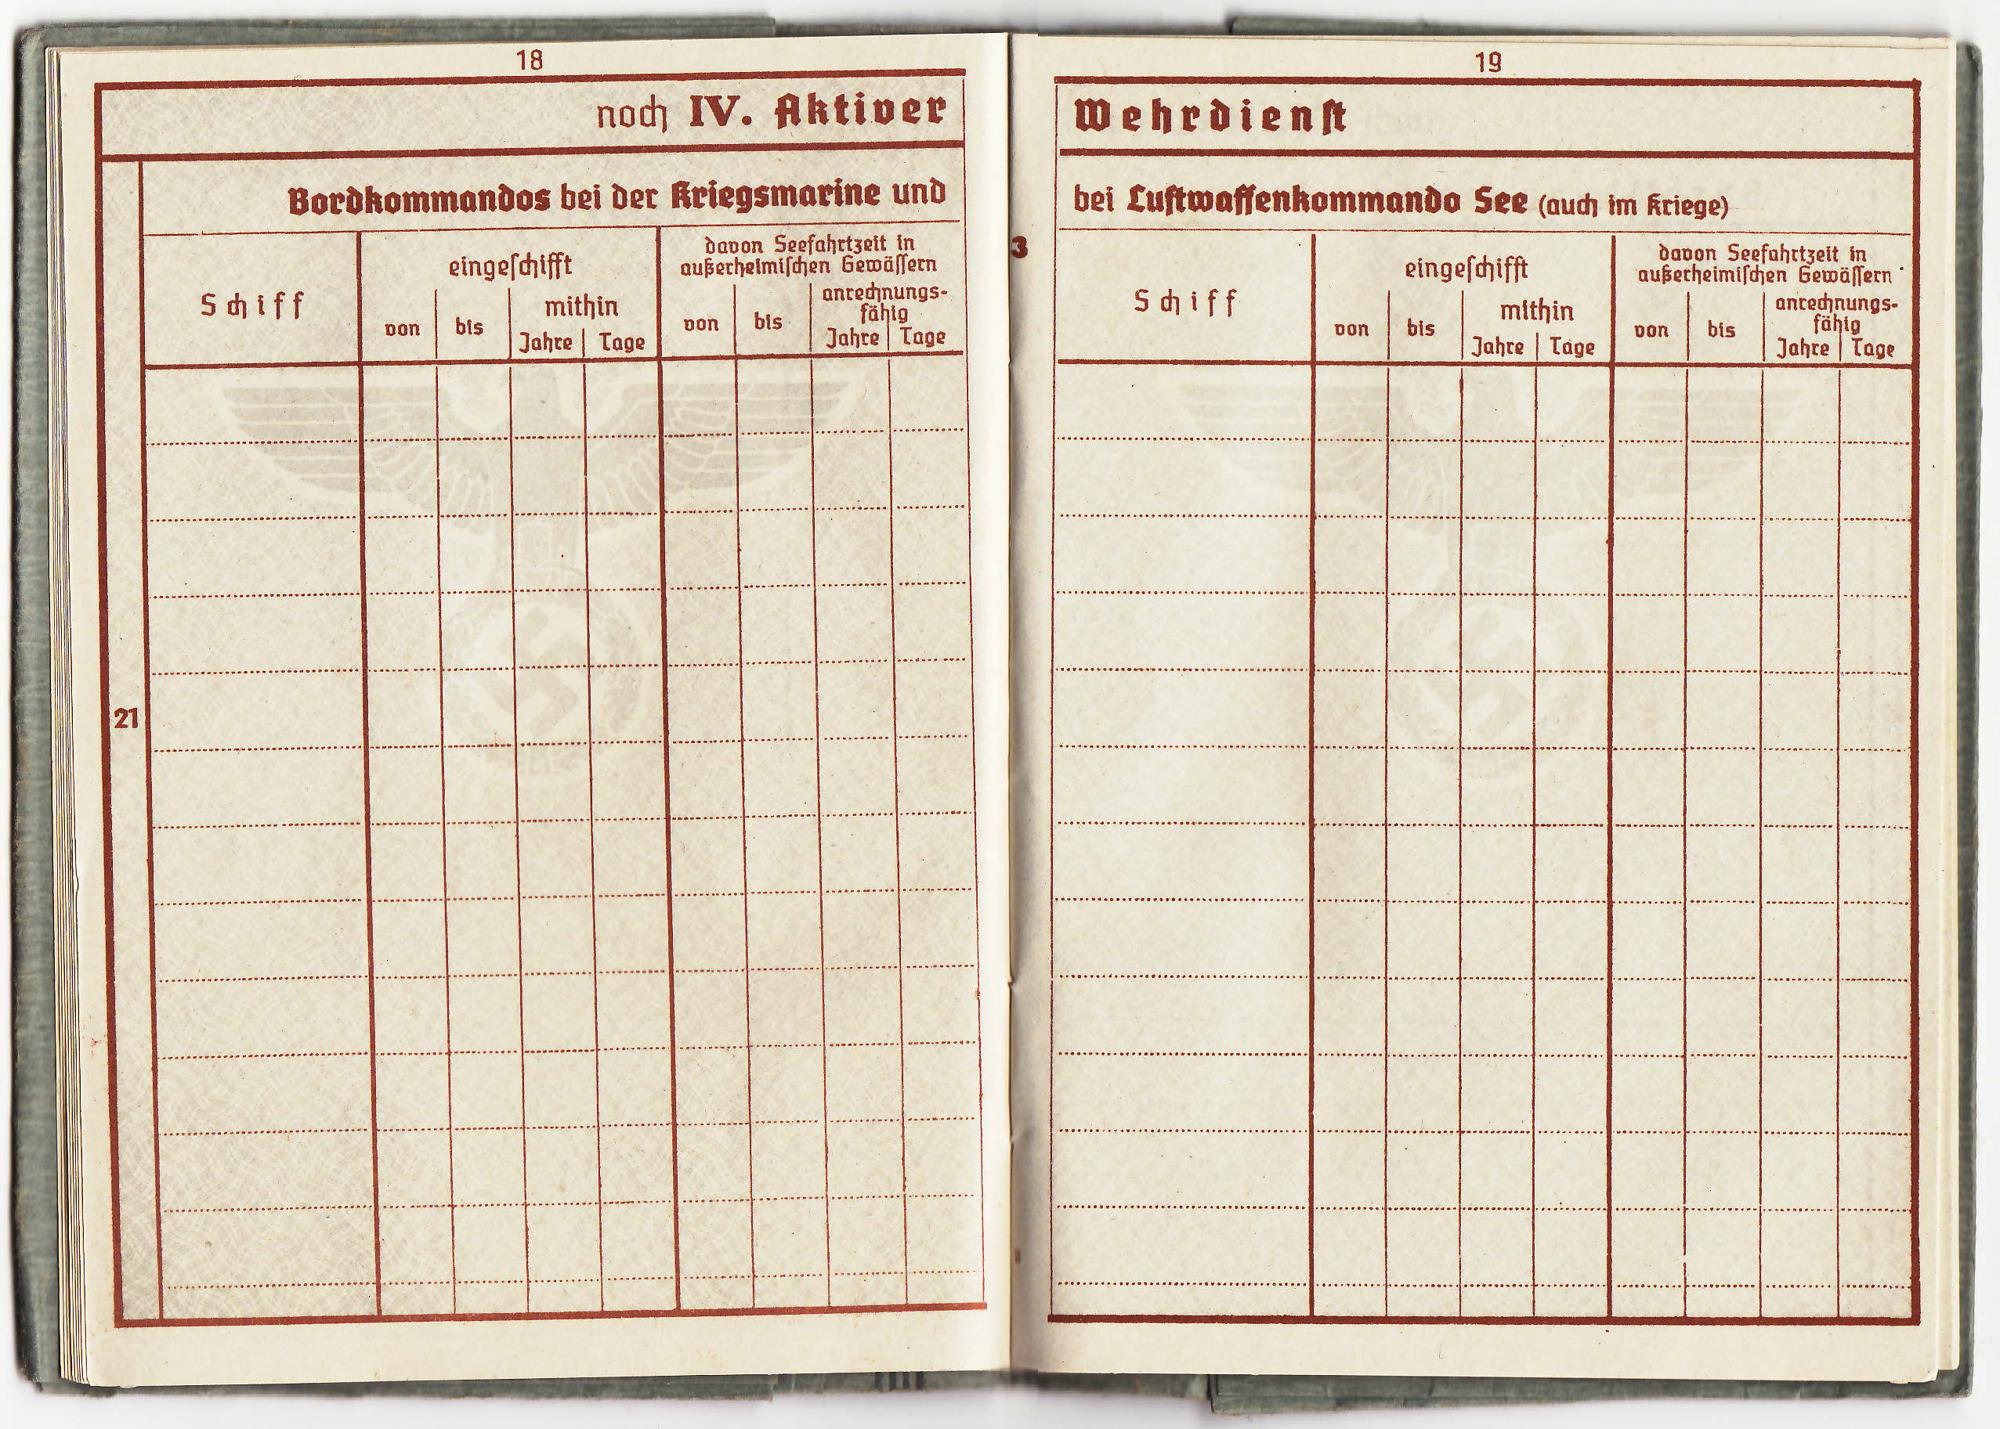 18
noch IV. Aktiver
Bordkommandos bei der Kriegsmarine und
Schiff
eingeschifft
von
bis
mithin
Jahre
Tage
davon Seefahrtzeit in
außerheimischen Gewässern
von
bis
anrechnungs-
fähig
Jahre
Tage
21
19
Wehrdienst
bei Luftwaffenkommando See (auch im Kriege)
3
Schiff
eingeschifft
von
bis
mithin
Jahre
Tage
davon Seefahrtzeit in
außerheimischen Gewässern
von
bis
anrechnungs-
fähig
Jahre
Tage